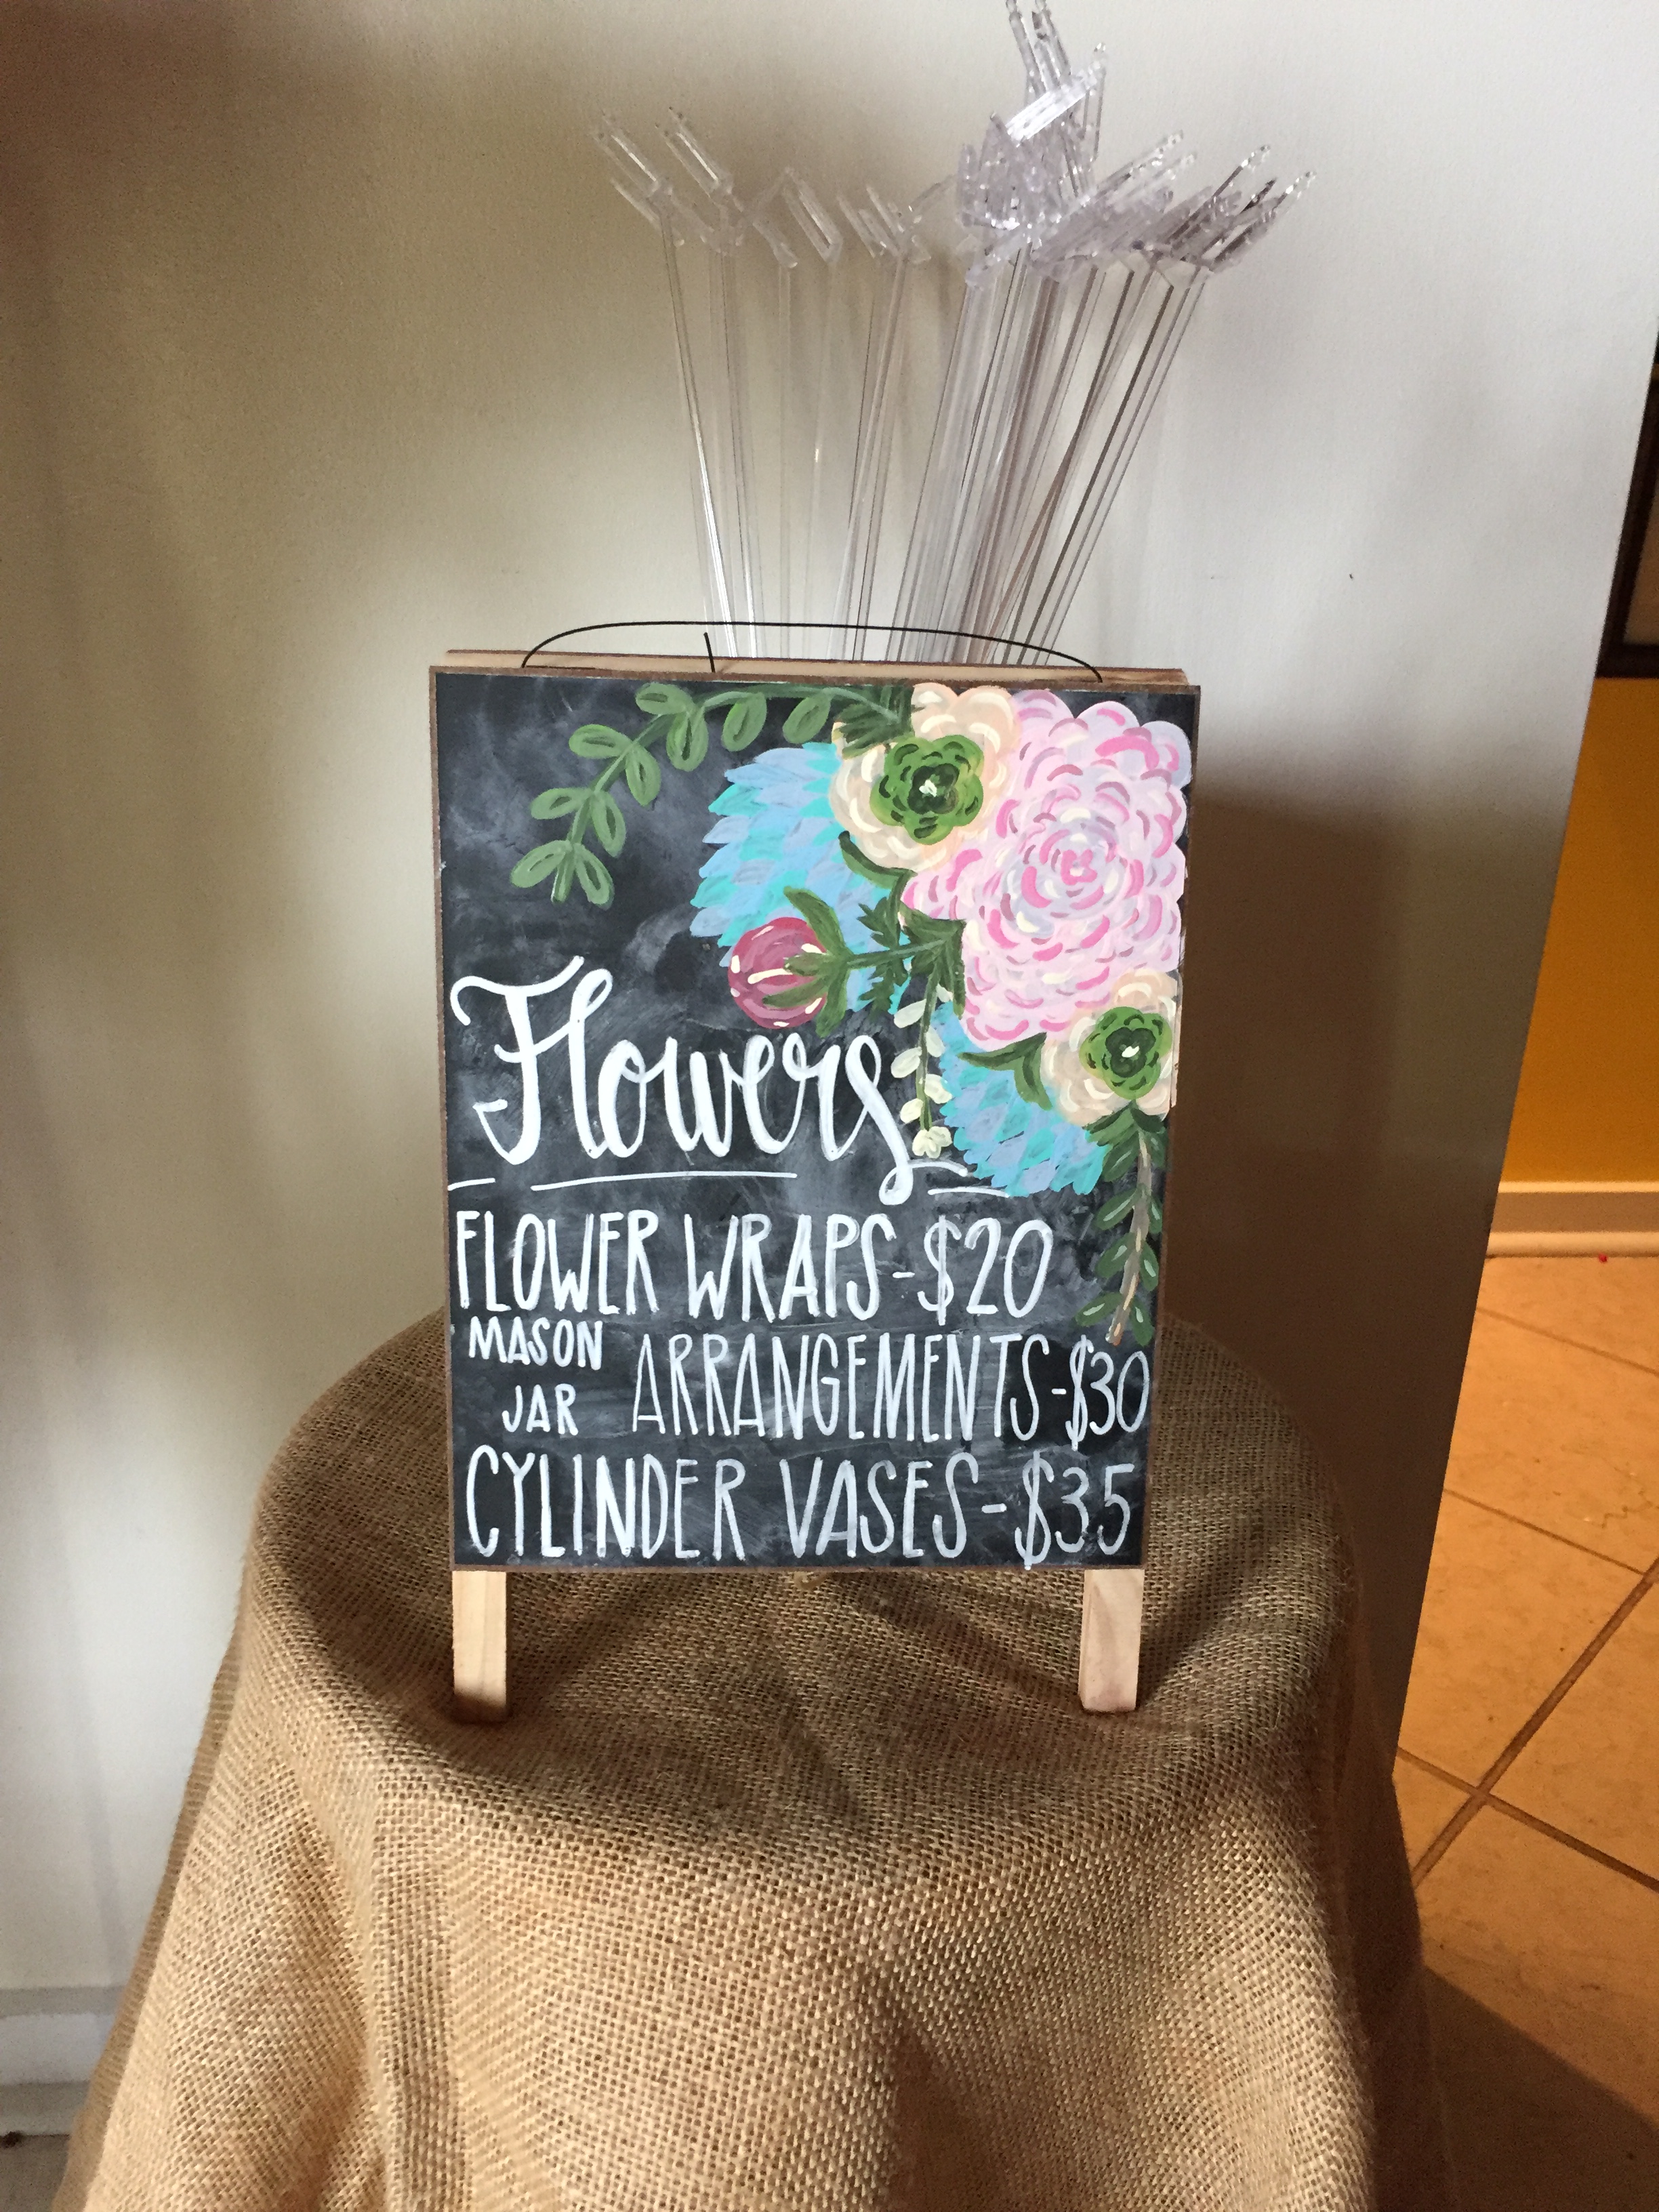 Flowers
FLOWER WRAPS-$20
MASON JAR ARRANGEMENTS-$30
CYLINDER VASES-$35